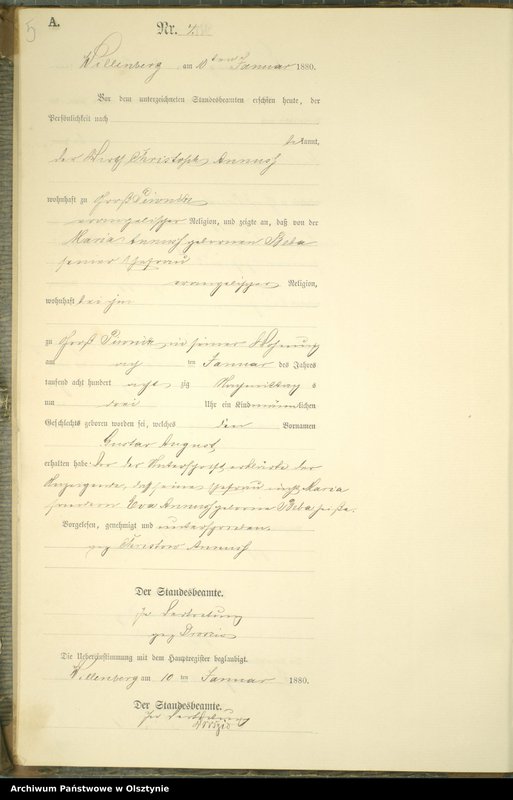 5
A.
Nr. 7.
Willenberg am 10 ten Januar 1880.
Vor dem unterzeichneten Standesbeamten erschien heute, der
Persönlichkeit nach
bekannt,
der Wirth Christoph Annuss
wohnhaft zu Groß Piwnitz
evangelischer Religion, und zeigte an, daß von der
Maria Annuss geborenen Beba
seiner Ehefrau
evangelischer Religion,
wohnhaft bei ihm
zu Groß Piwnitz in seiner Wohnung
am ten Januar des Jahres
tausend acht hundert acht zig Nachmittag s
um drei Uhr ein Kind männlichen
Geschlechts geboren worden sei, welches den Vornamen
Gustav August
erhalten habe. Vor der Unterschrift erklärte der
Anzeigende, daß seine Ehefrau nicht Maria
sondern Eva Annuss geborene Beba
Vorgelesen, genehmigt und unterschrieben.
gez Annuss
Der Standesbeamte.
In Vertretung
gez
Die Uebereinstimmung mit dem Hauptregister beglaubigt.
Willenberg am 10 ten Januar 1880.
Der Standesbeamte.
In Vertretung
Archiwum Państwowe w Olsztynie